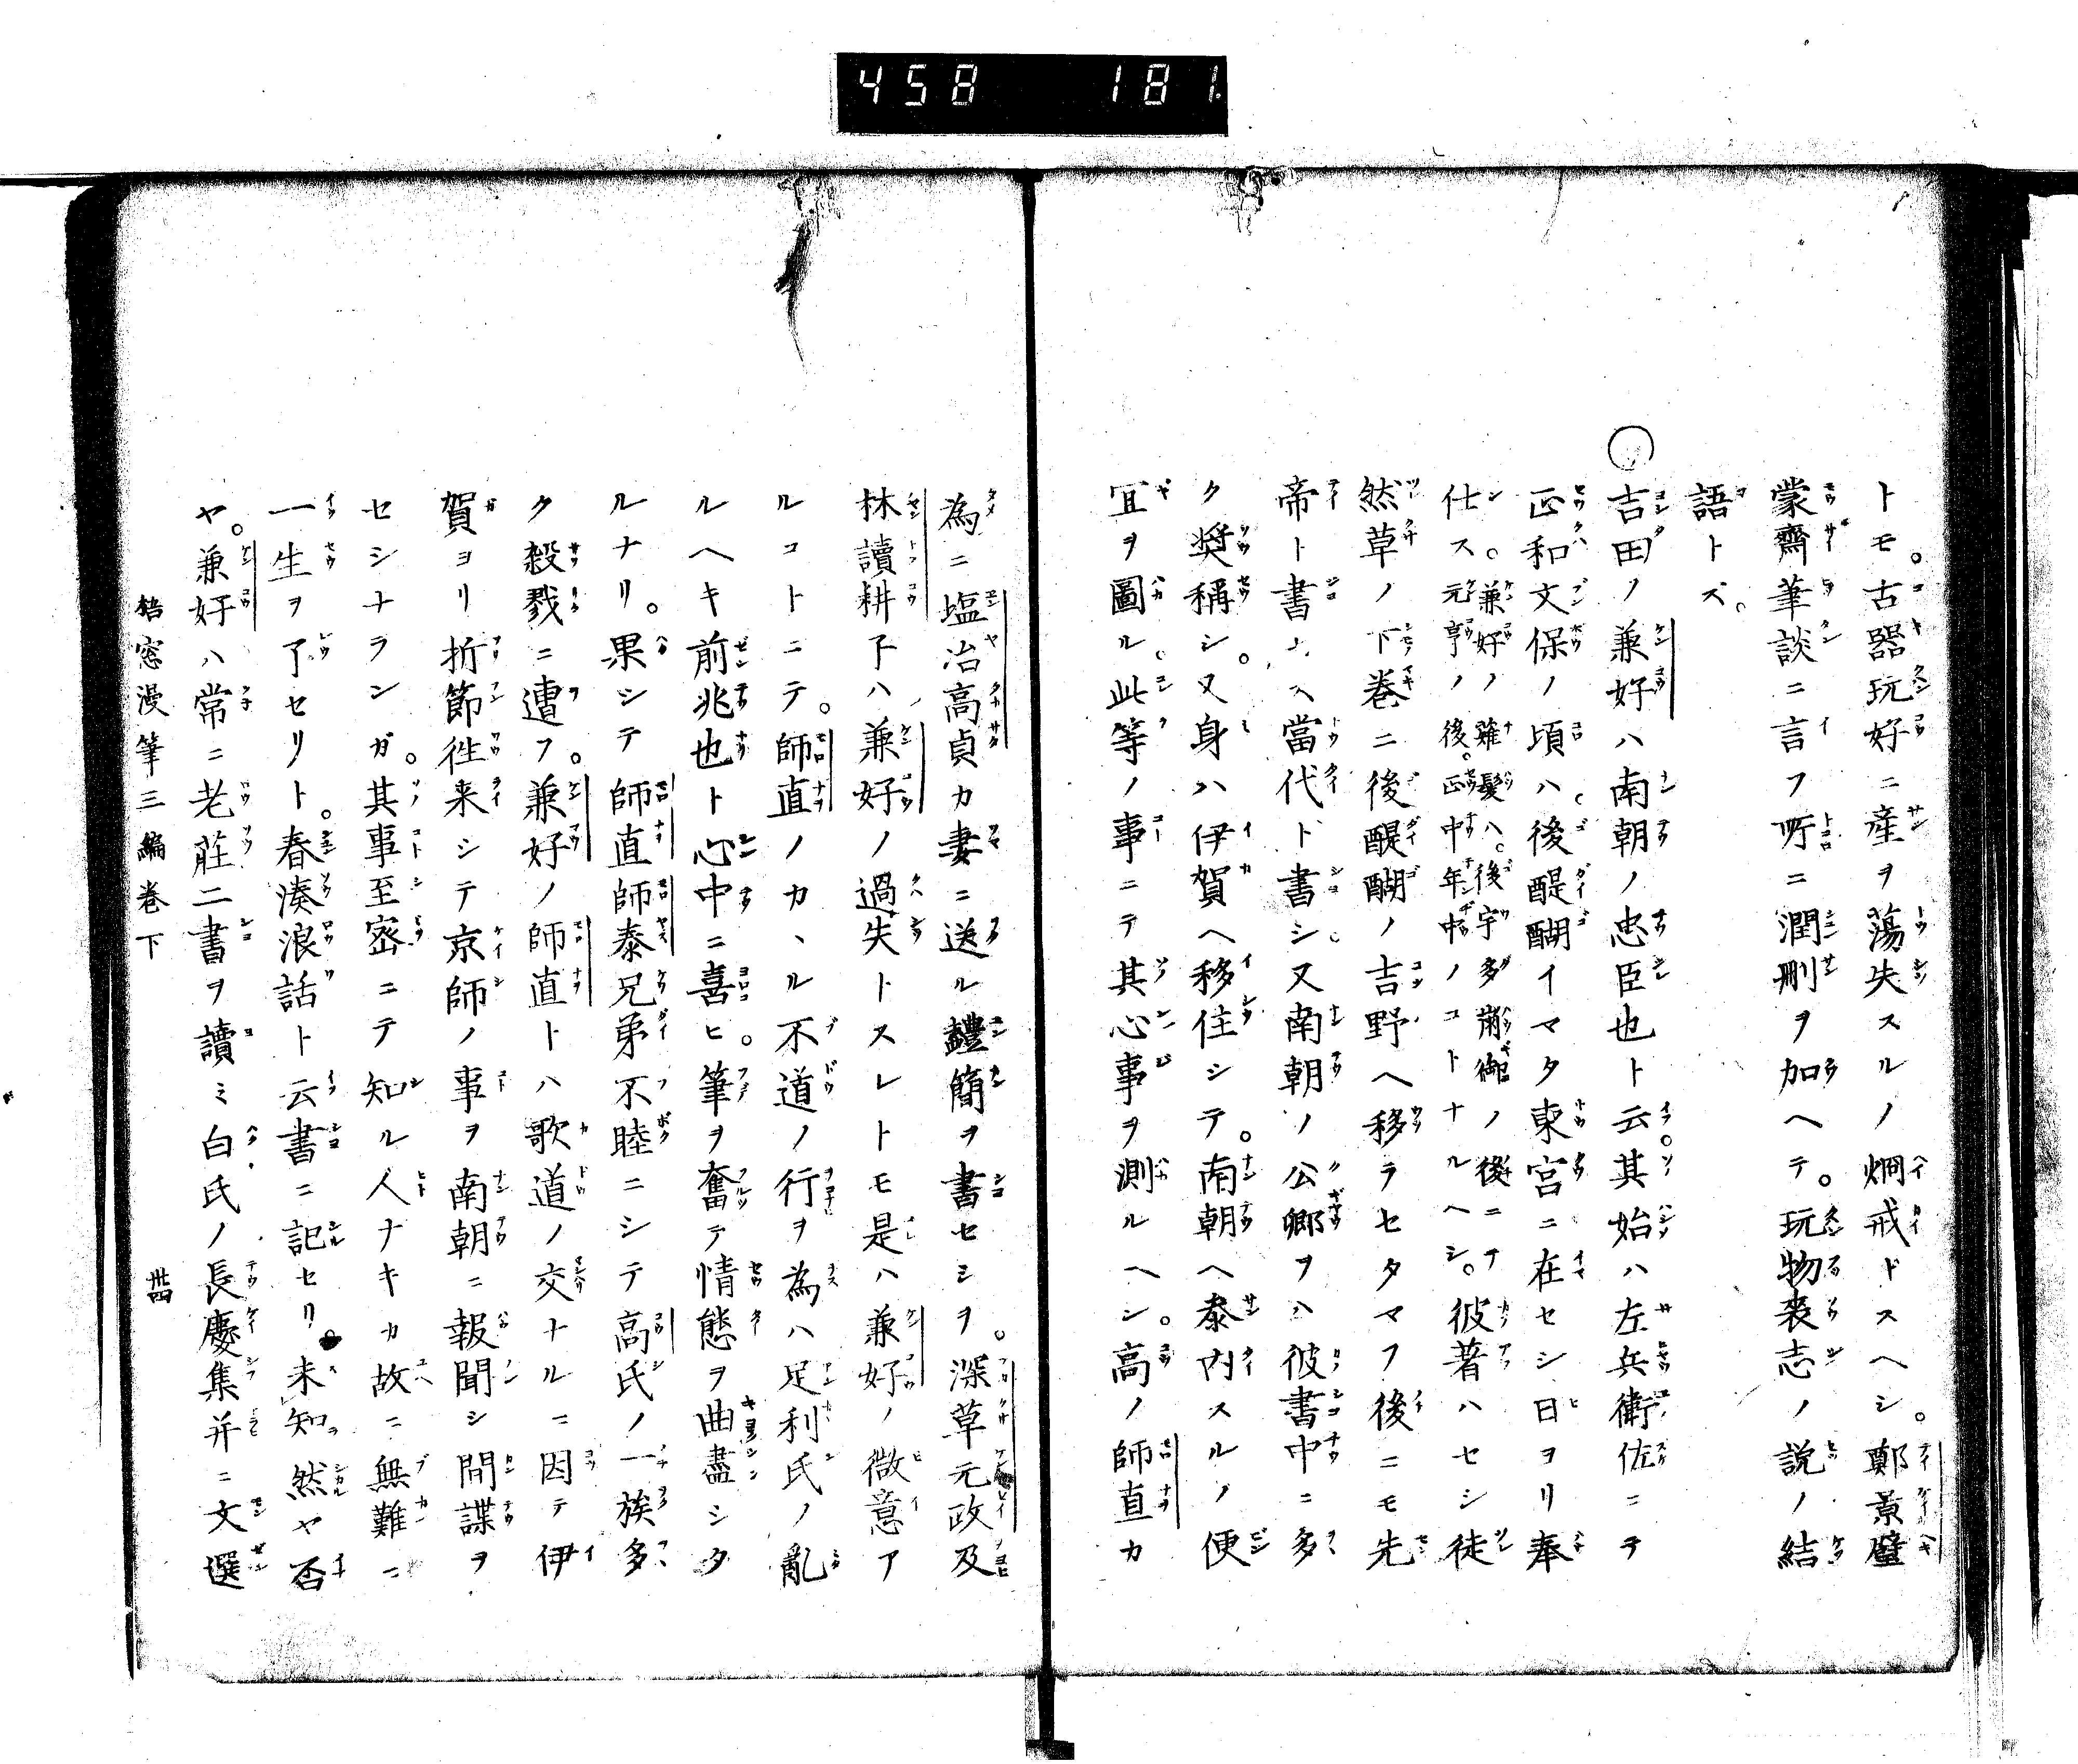 458 181
トモ。古器玩好ニ産ヲ蕩失スルノ炯戒トスヘシ。鄭景璧
蒙齋筆談ニ言フ所ニ潤刪ヲ加ヘテ。玩物喪志ノ説ノ結
語トス。
○吉田ノ兼好ハ南朝ノ忠臣也ト云。其始ハ左兵衛佐ニテ
正和文保ノ頃ハ。後醍醐イマタ東宮ニ在セシ日ヨリ奉
仕ス。兼好ノ薙髪ハ。後宇多崩御ノ後ニテ元亨ノ後。正中年中ノコトナルヘシ。彼著ハセシ徒
然草ノ下巻ニ後醍醐ノ吉野ヘ移ラセタマフ後ニモ先
帝ト書ス當代ト書シ。又南朝ノ公卿ヲハ彼書中ニ多
ク奬稱シ。又身ハ伊賀ヘ移住シテ。南朝ヘ泰内スルノ便
宜ヲ圖ル。此等ノ事ニテ其心事ヲ測ルヘシ。高ノ師直カ
為ニ塩冶高貞カ妻ニ送ル艶簡ヲ書セシヲ。深草元政及
林讀耕下ハ兼好ノ過失トスレトモ是ハ兼好ノ微意ア
ルコトニテ。師直ノカヽル不道ノ行ヲ為ハ足利氏ノ亂
ルヘキ前兆也ト心中ニ喜ヒ。筆ヲ奮テ情態ヲ曲盡シタ
ルナリ。果シテ師直師泰兄弟不睦ニシテ高氏ノ一族多
ク殺戮ニ遭フ。兼好ノ師直トハ歌道ノ交ナルニ因テ伊
賀ヨリ折節徃来シテ京師ノ事ヲ南朝ニ報聞シ間諜ヲ
セシナランガ。其事至密ニテ知ル人ナキカ故ニ無難ニ
一生ヲ了セリト。春湊浪話ト云書ニ記セリ。未知然ヤ否
ヤ。兼好ハ常ニ老莊二書ヲ讀ミ白氏ノ長慶集并ニ文選
窓漫筆三編巻下 卅四